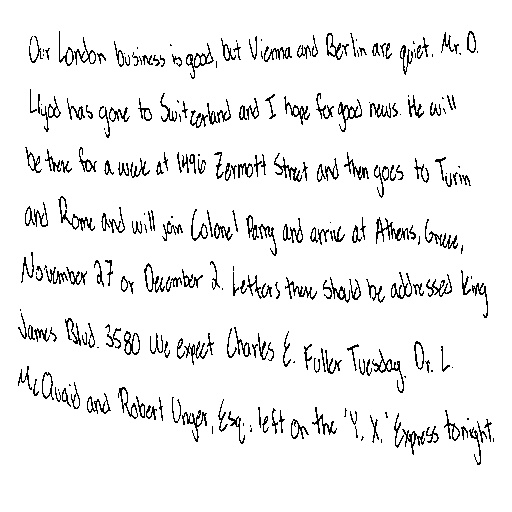 Our London business is good, but Vienna and Berlin are quiet. Mr. D.
Llyod has gone to Switzerland and I hope for good news. He will
be there for a week at 1496 Zermott Street and then goes to Turin
and Rome and will join Colonel Parry and arrive at Athens, Greece,
November 27 or December 2. Letters there should be addressed King
James Blvd. 3580 We expect Charles E. Fuller Tuesday. Dr. L.
McQuaid and Robert Unger, Esq., left on the 'Y. X.' Express tonight.